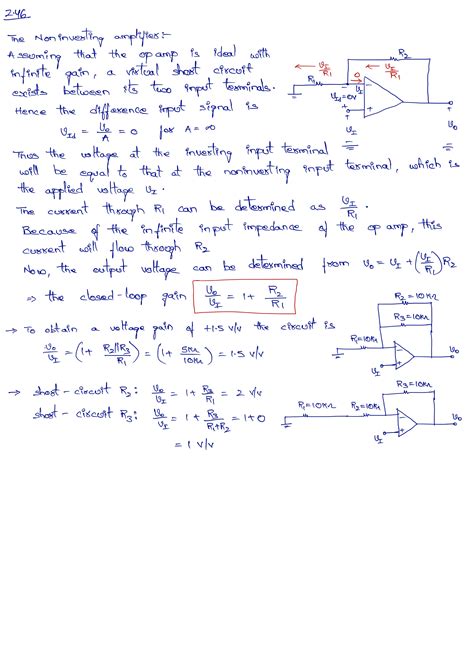 2.46
The Noninverting amplifier:-
Assuming that the op amp is ideal with
infinite gain, a virtual short circuit
exists between its two input terminals.
Hence the difference input signal is
v_Id = v_o/A = 0 for A = ∞
Thus the voltage at the inverting input terminal
will be equal to that at the noninverting input terminal, which is
the applied voltage v_I.
The current through R1 can be determined as v_I/R1.
Because of the infinite input impedance of the op amp, this
current will flow through R2
Now, the output voltage can be determined from v_o = v_I + (v_I/R1)R2
⇒ the closed-loop gain v_o/v_I = 1 + R2/R1
→ To obtain a voltage gain of +1.5 V/V the circuit is
v_o/v_I = (1 + R2||R3/R1) = (1 + 5K/10K) = 1.5 V/V
→ short-circuit R2: v_o/v_I = 1 + R3/R1 = 2 V/V
short-circuit R3: v_o/v_I = 1 + R3/R1+R2 = 1+0
= 1 V/V
R2
v_I/R1
v_I/R1
R1
0
v_Id=0V
v_I
v_o
R2=10KΩ
R3=10KΩ
R1=10KΩ
v_I
v_o
R3=10KΩ
R1=10KΩ
R2=10KΩ
v_I
v_o